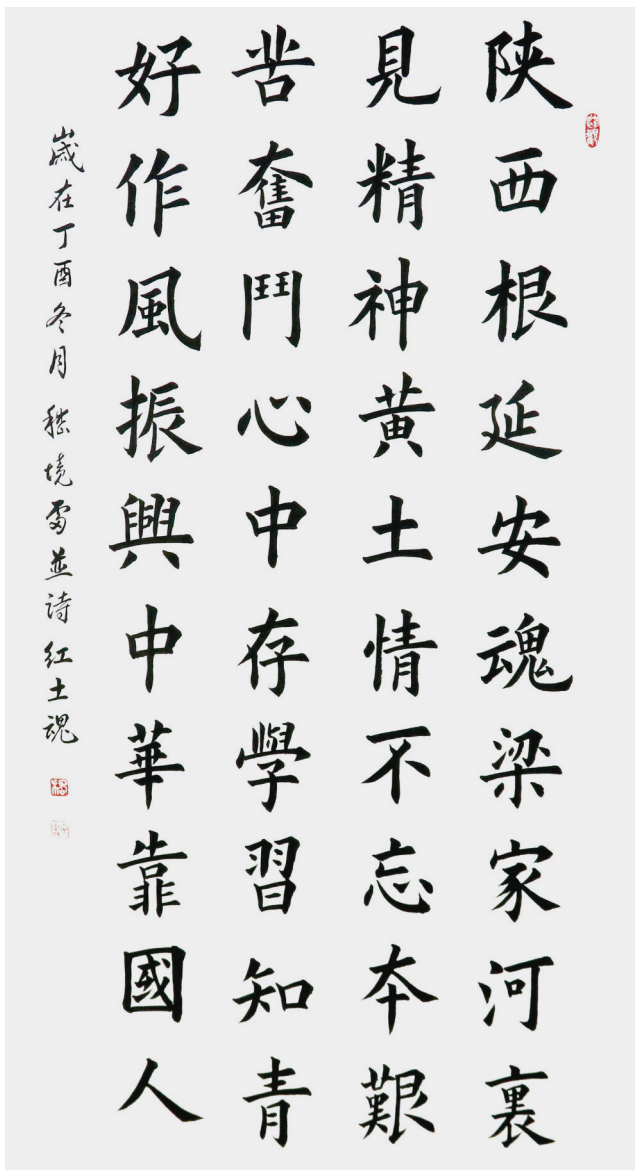 陕西根延安魂梁家河裏
見精神黄土情不忘本艱
苦奮鬥心中存學習知青
好作風振興中華靠國人
歲在丁酉冬月嵇境雷並詩紅土魂